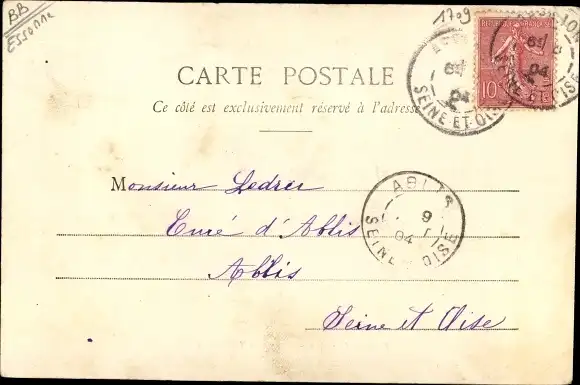 BB
ESSONNE
1709
RÉPUBLIQUE FRANÇAISE
10
04
SEINE-ET-OISE
04
OISE
CARTE POSTALE
Ce côté est exclusivement réservé à l'adresse
Monsieur Ledrer
Curé d'Ablis
Ablis
Seine et Oise
ABLIS
9
04
SEINE OISE